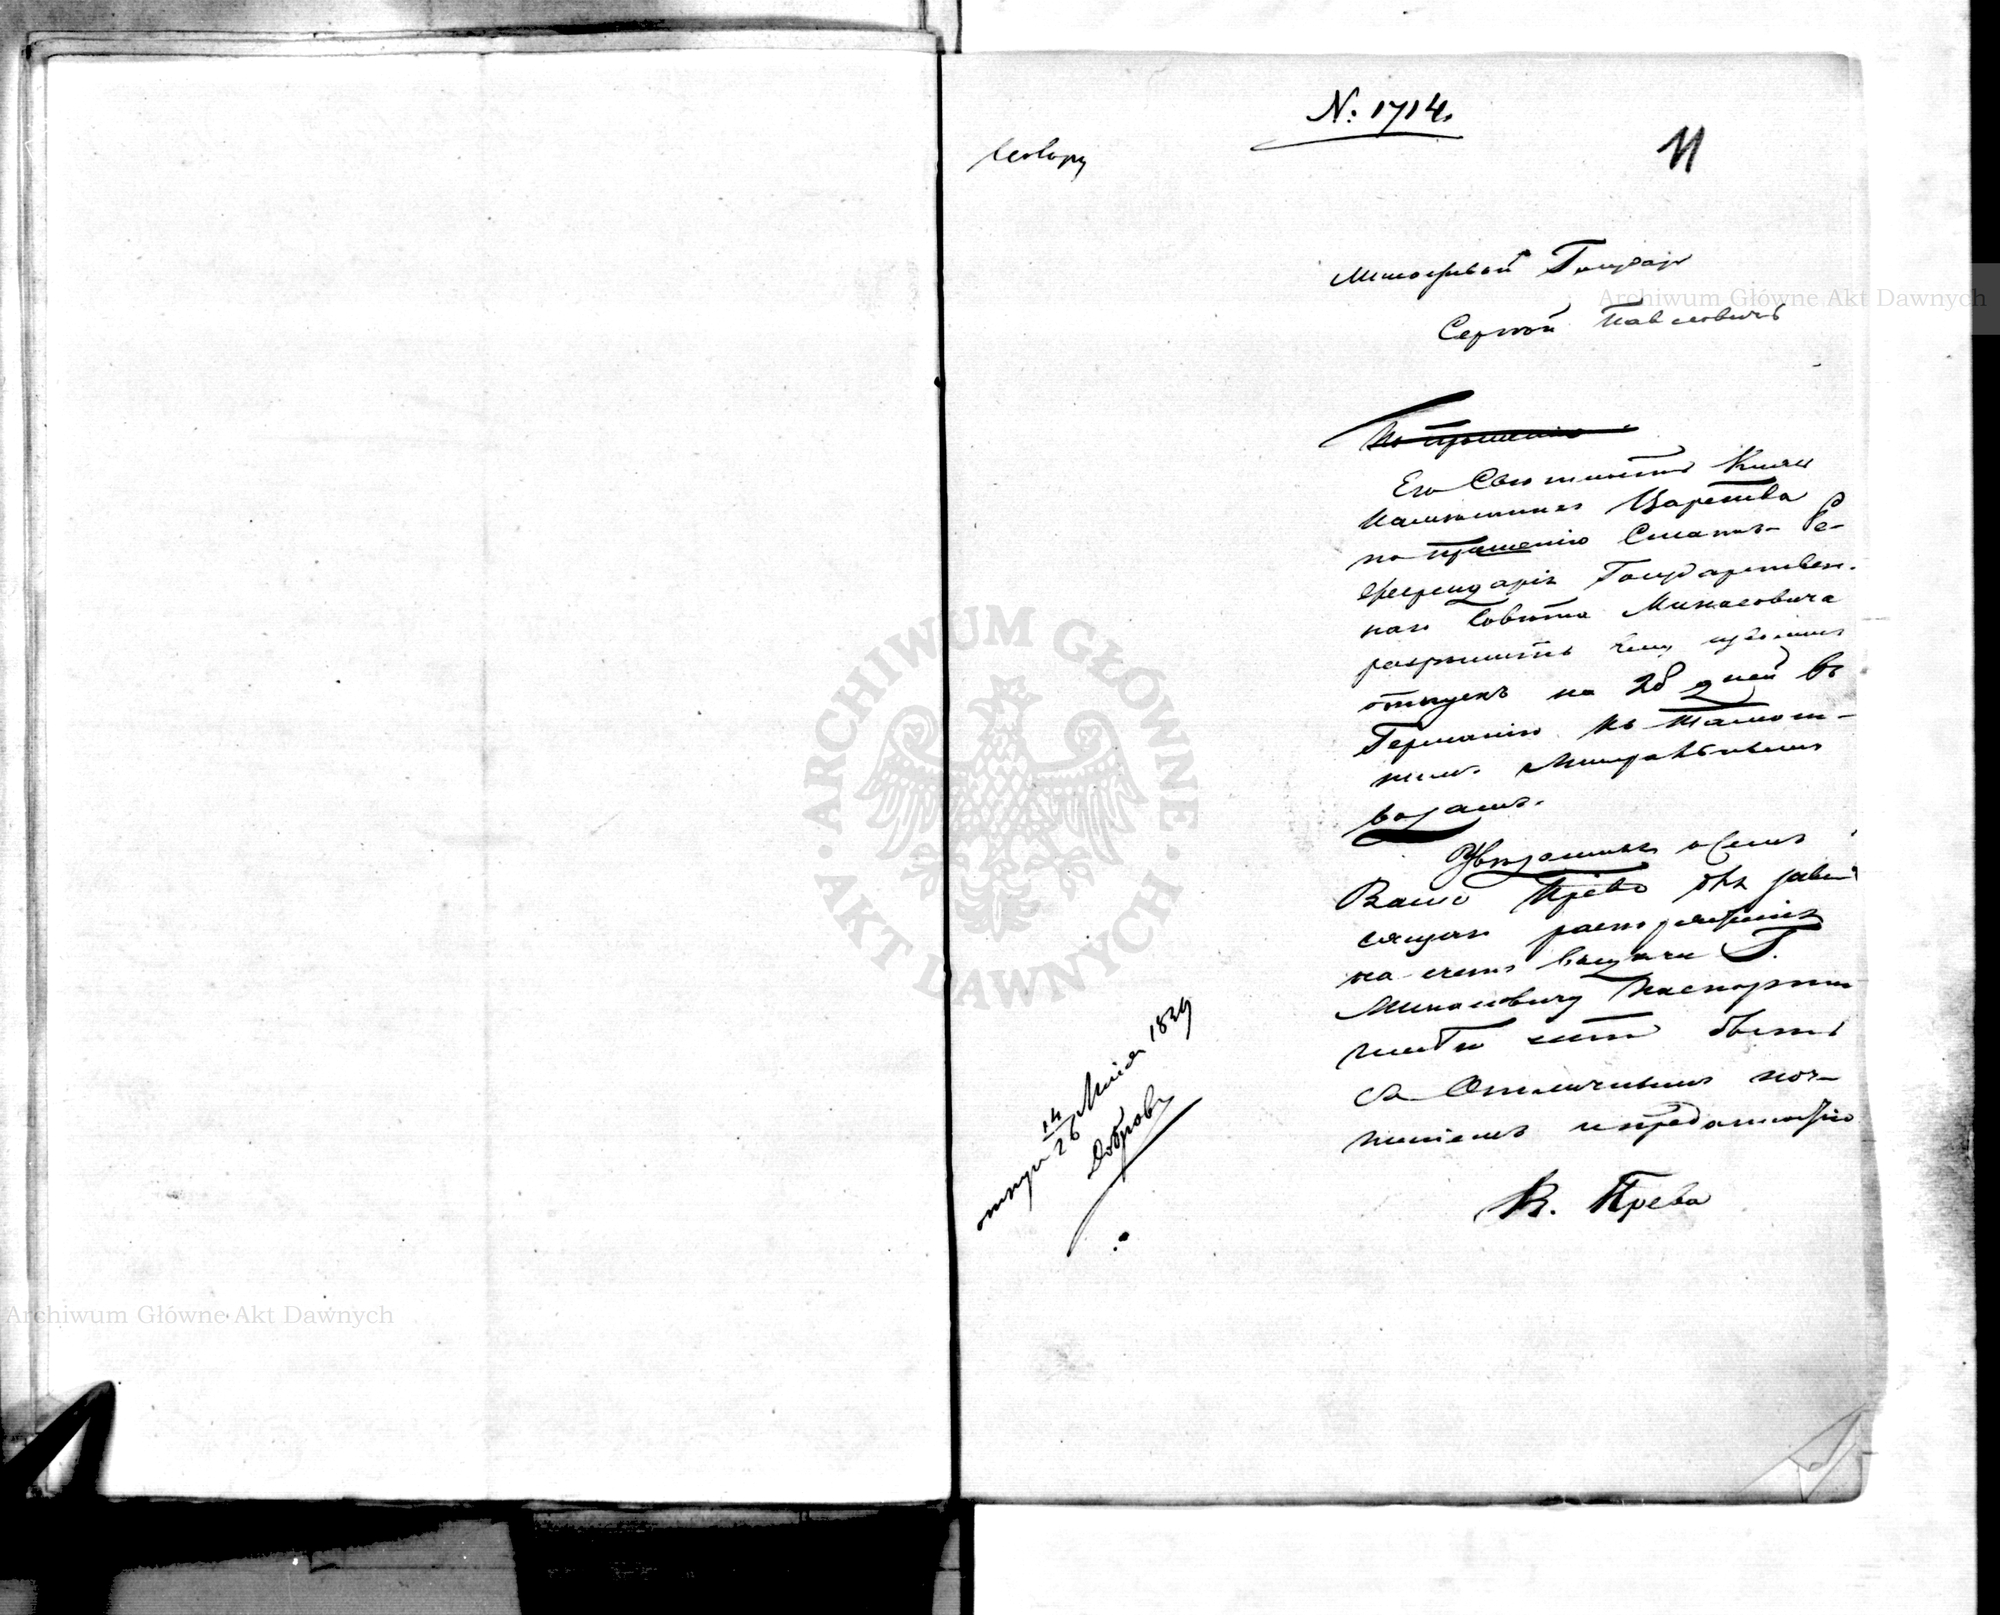 N: 1714.
11
Милостивый Государь
Сергей Павловичъ
По прошенію
Его Светлость Князь
Намѣстникъ Царства
по прошенію Статсъ-Ре-
ферендарія Государствен-
наго Совѣта Минасовича
разрѣшить ему
отпускъ на 28 дней въ
Германію къ тамош-
нимъ Минеральнымъ
водамъ.
Увѣдомляя о семъ
Ваше Прево для зави-
сящаго распоряженія
на счетъ выдачи Г.
Минасовичу паспорта
имѣю честь быть
съ Отличнымъ поч-
теніемъ и преданностію
В. Прева
14
26 Мая 1839
Archiwum Główne Akt Dawnych
ARCHIWUM GŁÓWNE
AKT DAWNYCH
Archiwum Główne Akt Dawnych